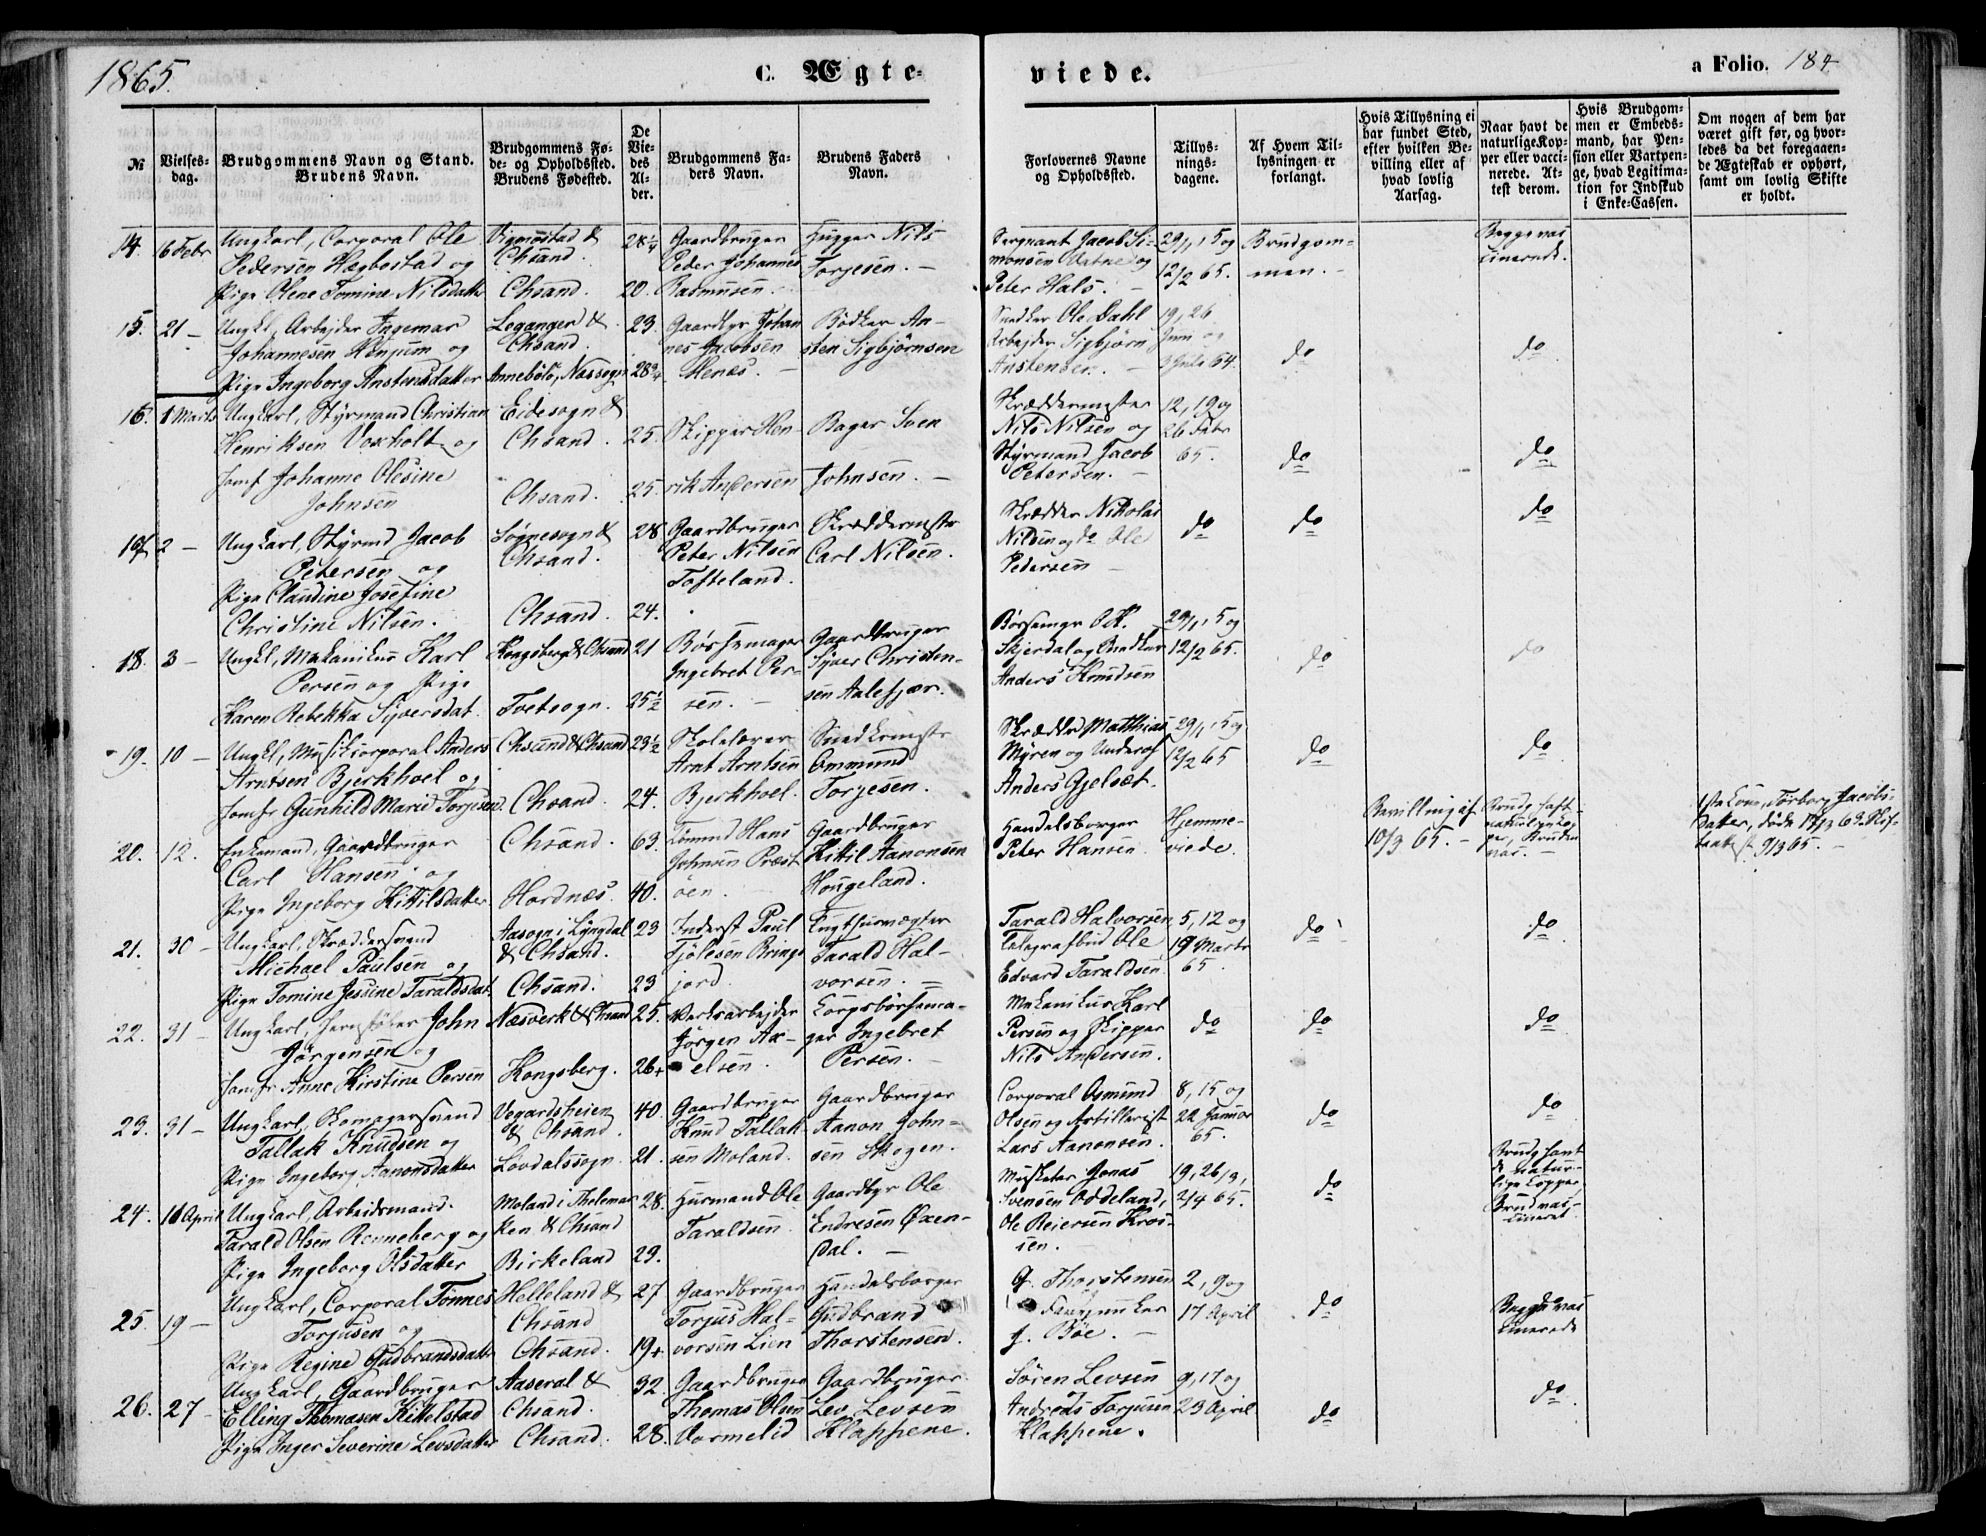 1865.
C. Ægte-
viede.
a Folio. 184
№
Vielses-
dag.
Brudgommens Navn og Stand.
Brudens Navn.
Brudgommens Fø-
de- og Opholdssted.
Brudens Fødested.
De
Vie-
des
Al-
der.
Brudgommens Fa-
ders Navn.
Brudens Faders
Navn.
Forlovernes Navne
og Opholdssted.
Tillys-
nings-
dagene.
Af Hvem Til-
lysningen er
forlangt.
Hvis Tillysning ei
har fundet Sted,
efter hvilken Be-
villing eller af
hvad lovlig
Aarsag.
Naar havt de
naturlige Kop-
per eller vacci-
nerede. At-
test derom.
Hvis Brudgom-
men er Embeds-
mand, har Pen-
sion eller Vartpen-
ge, hvad Legitima-
tion for Indskud
i Enke-Cassen.
Om nogen af dem har
været gift før, og hvor-
ledes da det foregaaen-
de Ægteskab er ophørt,
samt om lovlig Skifte
er holdt.
14. 6 Febr
Ungkarl, Corporal Ole
Pedersen Hægbostad og
Pige Olene Tomine Nilsdatter
Vigmostad &
Chsand.
Chsand.
28 1/4
20.
Gaardbruger
Peder Johannes
Rasmusen.
Hugger Nils
Torjesen. —
Sergeant Jacob Si-
monsen Vatne og
Peter Hals. —
29/1, 5 og
12/2 65.
Brudgom-
men. —
Begge vac-
cinerede.
15. 21 —
Ungkl, Arbejder Ingemar
Johannesen Henjum og
Pige Ingeborg Anstensdatter
Leganger &
Chsand.
Annebölö, Næssogn
23.
28 3/4
Gaardbr Johan
nes Jacobsen
Henæs. —
Bødker An-
sten Sigbjørnsen
Snedker Ole Dahl
Arbejder Sigbjørn
Anstensen. —
19, 26
Juni og
3 Juli 64.
do
do
16. 1 Marts
Ungkarl, Styrmand Christian
Henriksen Voxholt og
Jomf Johanne Olesine
Johnsen
Eidesogn &
Chsand.
Chsand.
25.
25.
Skipper Hen-
rik Andersen
Bager Sven
Johnsen. —
Skræddermester
Nils Nilsen og
Styrmand Jacob
Petersen. —
12, 19 og
26 Febr
65.
do
do
17 2 —
Ungkarl, Styrmd Jacob
Petersen og
Pige Claudine Josefine
Christine Nilsen.
Søgnesogn &
Chsand.
Chsand.
28
24.
Gaardbruger
Peter Nilsen
Tofteland.
Skræddermstr
Carl Nilsen.
Skrædder Nikolai
Nilsen og do Ole
Pedersen —
do
do
do
18. 3 —
Ungkl, Makanikus Karl
Persen og Pige
Karen Rebekka Syversdat.
Kongsberg & Chsand
Tvetsogn.
21
25 1/2
Børsemager
Ingebret Per-
sen. —
Gaardbruger
Syver Christen-
sen Aalefjær.
Børsemgr O. K.
Skjerdal og Snedker
Anders Knudsen
29/1, 5 og
12/2 65.
do
do
19. 10 —
Ungkl, Musikcorporal Anders
Arntsen Bjerkhoel og
Jomfr Gunhild Marie Torjesen
Chsand & Chsand
Chsand.
23 1/2
24.
Skolelærer
Arnt Arntsen
Bjerkhoel.
Snedkrmstr
Ommund
Torjesen.
Skrædder Matthias
Myren og Underof
Anders Gjelsæt.
29/1, 5 og
12/2 65
do
do
20. 12.
Enkemand, Gaardbruger
Carl Hansen og
Pige Ingeborg Kittilsdatter
Chsand.
Hordnæs
63.
40.
Tømmd Hans
Johnsen Præst
öen.
Gaardbruger
Kittil Aanonsen
Hougeland.
Handelsborger
Peter Hansen.
Hjemme-
viede.
Bevilling af
10/3 65. —
Brudg haft
naturl. Kop-
per, Bruden
vac. —
1ste Kone, Torborg Jacobs-
datter, døde 17/3 63. Skif-
teattest 9/3 65. —
21. 30 —
Ungkarl, Skræddersvend
Michael Paulsen og
Pige Tomine Jessine Taraldsdat
Aasogn i Lyngdal
& Chsand.
Chsand.
23
23
Inderst Paul
Tjölesen Brings
jord.
Tugthusvægter
Tarald Hal-
vorsen. —
Tarald Halvorsen
Telegrafbud Ole
Edvard Taraldsen
5, 12 og
19 Marts
65.
do
do
22. 31 —
Ungkarl, Jernstøber John
Jörgensen og
Jomfr Anne Kirstine Persen
Næsverk & Chsand
Kongsberg.
25.
26+
Verksarbejder
Jörgen Ax-
elsen.
Corpsbörsema-
ger Ingebret
Persen. —
Mekanikus Karl
Persen og Skipper
Nils Andersen.
do
do
do
23. 31 —
Ungkarl, Skomagersvend
Tallak Knudsen og
Pige Ingeborg Aanonsdatter
Vegardsheien
& Chsand.
Lovdalssogn
40.
21.
Gaardbruger
Knud Tallak-
sen Moland.
Gaardbruger
Aanon John-
sen Skogen.
Corporal Osmund
Olsen og Artillerist
Lars Aanonsen.
8, 15 og
22 Januar
65.
do
do
24. 10 April
Ungkarl, Arbeidsmand
Tarald Olsen Renneberg og
Pige Ingeborg Olsdatter
Moland i Thelemar
ken & Chsand
Birkeland
28.
29.
Husmand Ole
Taraldsen
Gaardbgr Ole
Endresen Øxen-
dal. —
Musketer Jonas
Svensen Oddeland,
Ole Reiersen Kros-
sen. —
19, 26/3,
2/4 65.
do
Brudg havt
de natur-
lige Kopper
Brud vac-
cineret
25. 19 —
Ungkarl, Corporal Tønnes
Torjusen og
Pige Regine Gudbrandsdatter
Helleland &
Chsand
Chsand.
27
19+
Gaardbruger
Torjus Hal-
vorsen Lien
Handelsborger
Gudbrand
Thorstensen.
G. Thorstensen
J. Bøe. —
2, 9 og
17 April
do
Begge vac
cinerede
26. 27 —
Ungkarl, Gaardbruger
Elling Thomasen Kittelstad
Pige Inger Severine Levsdatter
Aaseral &
Chsand.
Chsand.
32.
28.
Gaardbruger
Thomas Olsen
Vormelid
Gaardbruger
Lev Levsen
Klappene.
Søren Levsen
Andreas Torjusen
Klappene.
9, 17 og
23 April
do
do